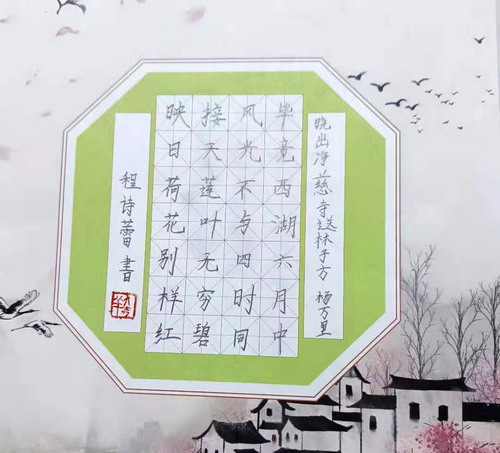 晓出净慈寺送林子方 杨万里
毕竟西湖六月中
风光不与四时同
接天莲叶无穷碧
映日荷花别样红
程诗蕾书